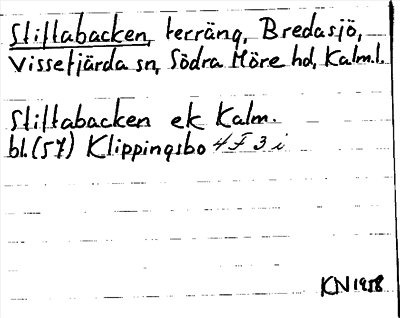 Slittabacken, terräng, Bredasjö,
Vissefjärda sn, Södra Möre hd, Kalm.l.
Slittabacken ek Kalm.
bl. (57) Klippingsbo 4F 3 i
KN 1958